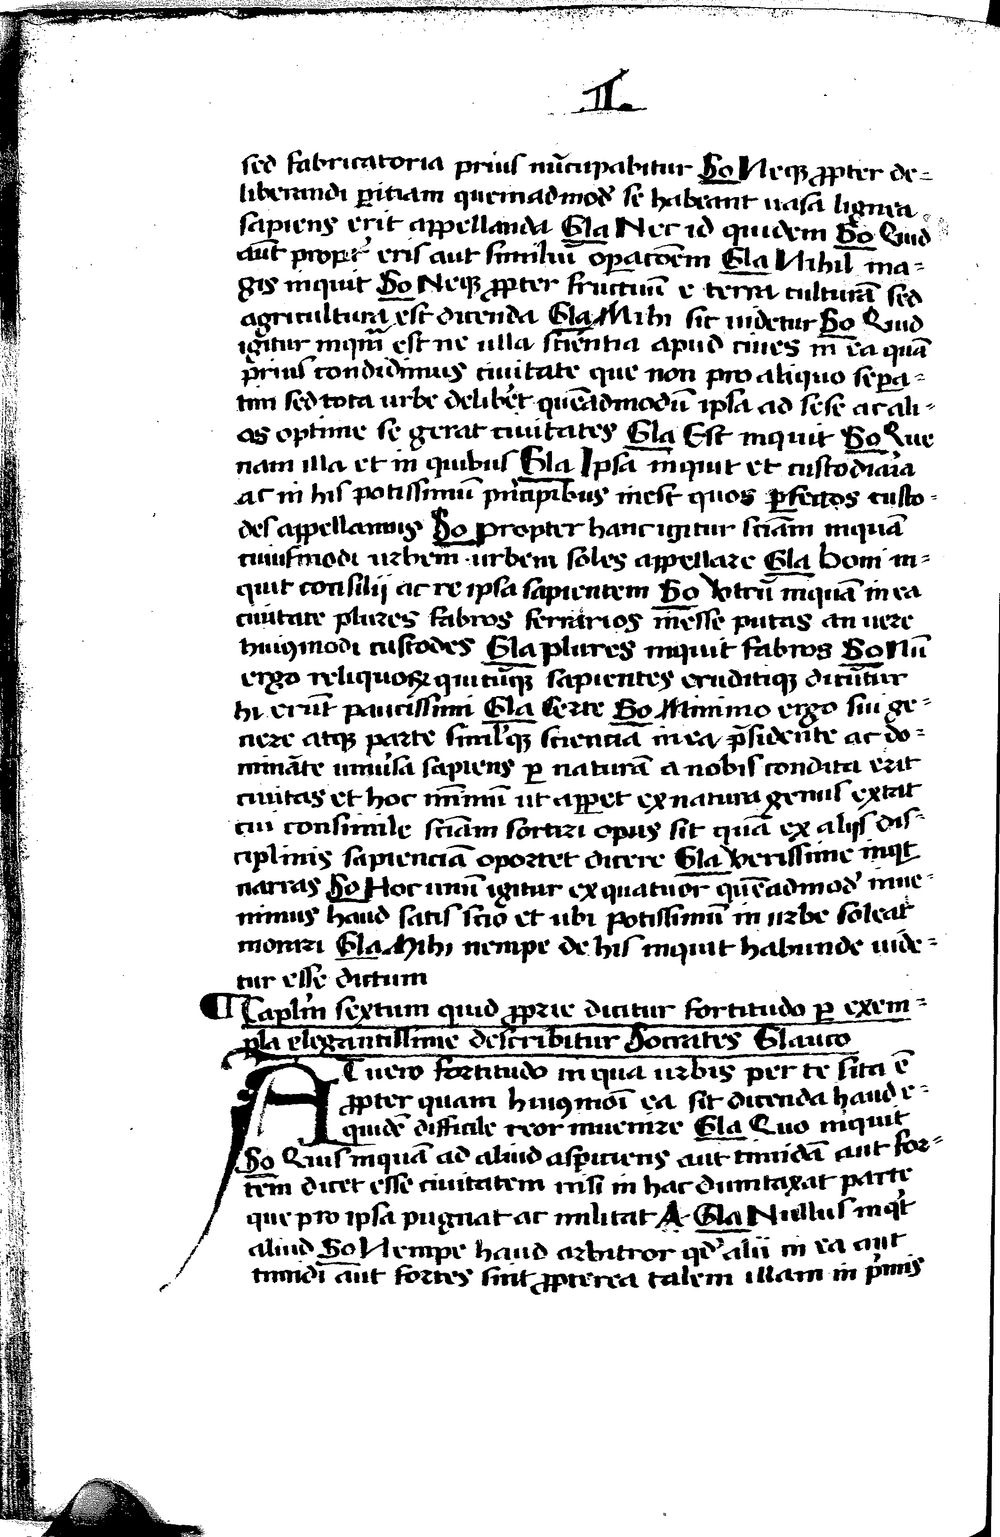 II.
sed fabricatoria prius nūcupabitur So Neqꝫ ꝓpter de=
liberandi ꝑitiam quemadmodꝰ se habeant uasa lignea
sapiens erit appellanda Gla Nec id quidem So Quid
aūt propt̓ eris aut similiū oꝑacōem Gla Nihil ma=
gis inquit So Neqꝫ ꝓpter fructuū e terra culturā sed
agricultura est dicenda Gla Mihi sic uidetur So Quid
igitur inquā est ne ulla scientia apud ciues in ea quā
prius condidimus ciuitate que non pro aliquo sepa=
tim sed tota urbe deliberet quēadmodū ipsa ad sese ac ali=
as optime se gerat ciuitates Gla Est inquit So Que
nam illa et in quibus Gla Ipsa inquit et custodiaria
ac in his potissimū principibus inest quos ꝑfectos custo=
des appellamus So Propter hanc igitur sciām inquā
cuiusmodi urbem urbem soles appellare Gla Boni in=
quit consilij ac re ipsa sapientem So Vtrū inquā in ea
ciuitate plures fabros ferrarios inesse putas an uere
huiꝯmodi custodes Gla plures inquit fabros So Nū
ergo reliquoꝝ quicūqꝫ sapientes eruditiqꝫ dicūtur
hi erūt paucissimi Gla Certe So Minimo ergo sui ge=
nere atqꝫ parte similiqꝫ scientia in ea p̄sidente ac do=
mināte uniu̓sa sapiens ꝑ naturā a nobis condita erit
ciuitas et hoc minimū ut apꝑet ex natura genus extat
cui consimile sciām sortiri opus sit quā ex alijs dis=
ciplinis sapienciā oportet dicere Gla Verissime inqt
narras So Hoc unū igitur ex quatuor quēadmodꝰ inue=
nimus haud satis scio et ubi potissimū in urbe soleat
morari Gla Mihi nempe de his inquit habunde uide=
tur esse dictum
¶ Caplm̄ sextum quid ꝓprie dicitur fortitudo ꝑ exem=
pla elegantissime describitur Socrates Glauco
AT uero fortitudo in qua urbis per te sita ē
ꝓpter quam huiꝯmōi ea sit dicenda haud e=
quidē difficile reor inuenire Gla Quo inquit
So Quis inquā ad aliud aspiciens aut timidā aut for=
tem dicet esse ciuitatem nisi in hac dumtaxat parte
que pro ipsa pugnat ac militat A Gla Nullus inqt
aliud So Nempe haud arbitror qdꝰ alii in ea aut
timidi aut fortes sint ꝓpterea talem illam in primis